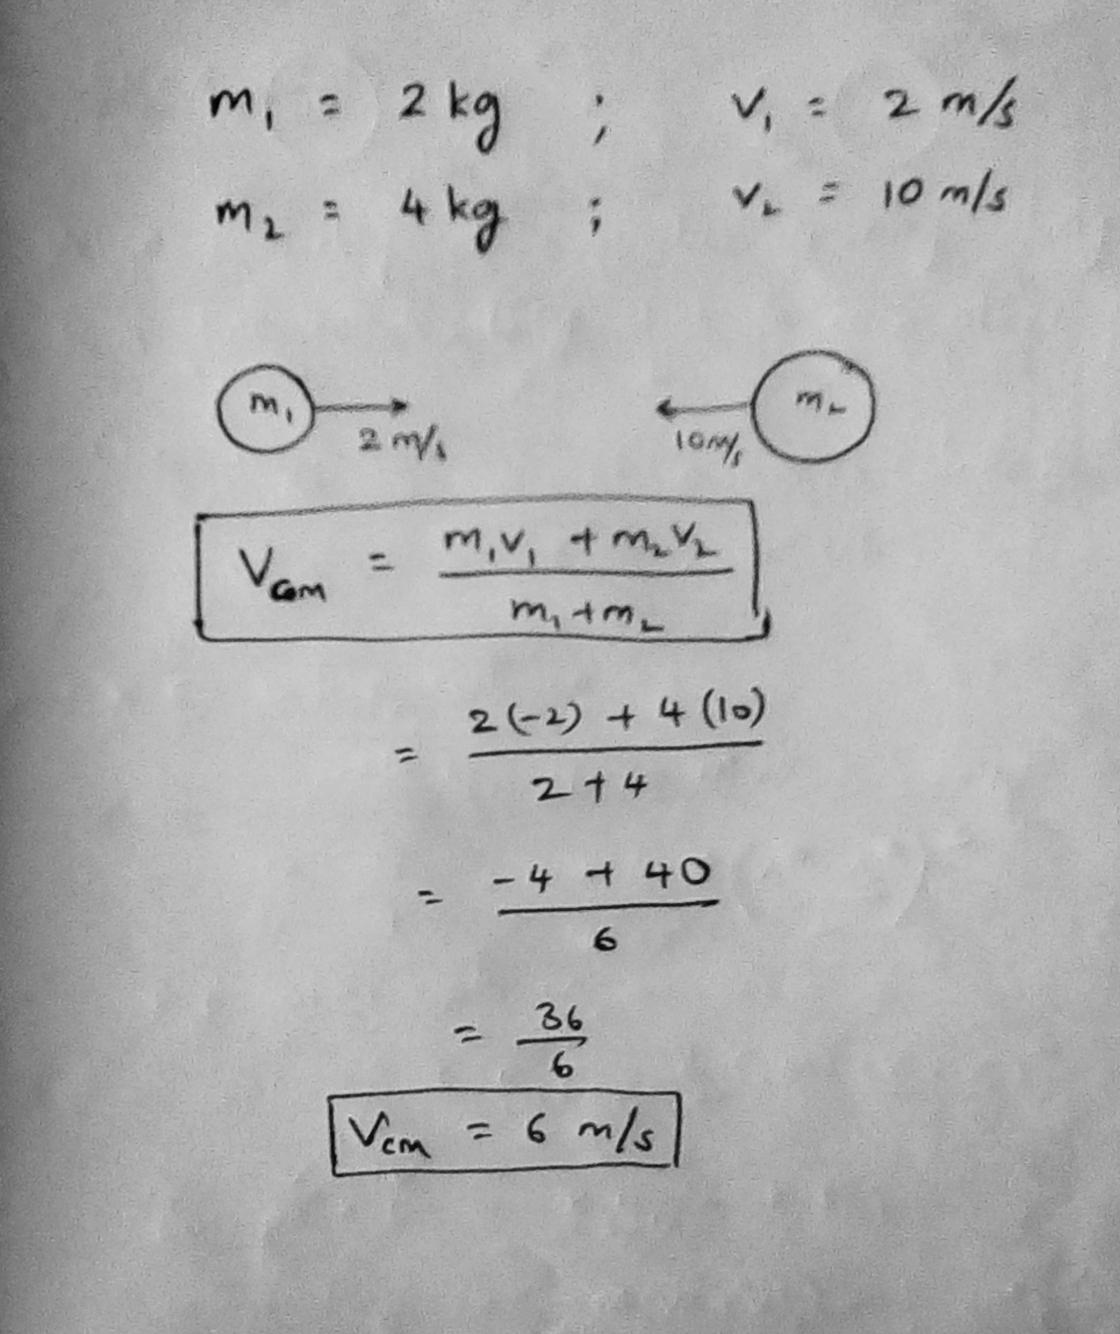 m₁ = 2 kg ; v₁ = 2 m/s
m₂ = 4 kg ; v₂ = 10 m/s
m₁ m₂
2 m/s 10 m/s
Vcom = (m₁v₁ + m₂v₂) / (m₁ + m₂)
= (2(-2) + 4(10)) / (2 + 4)
= (-4 + 40) / 6
= 36 / 6
Vcm = 6 m/s